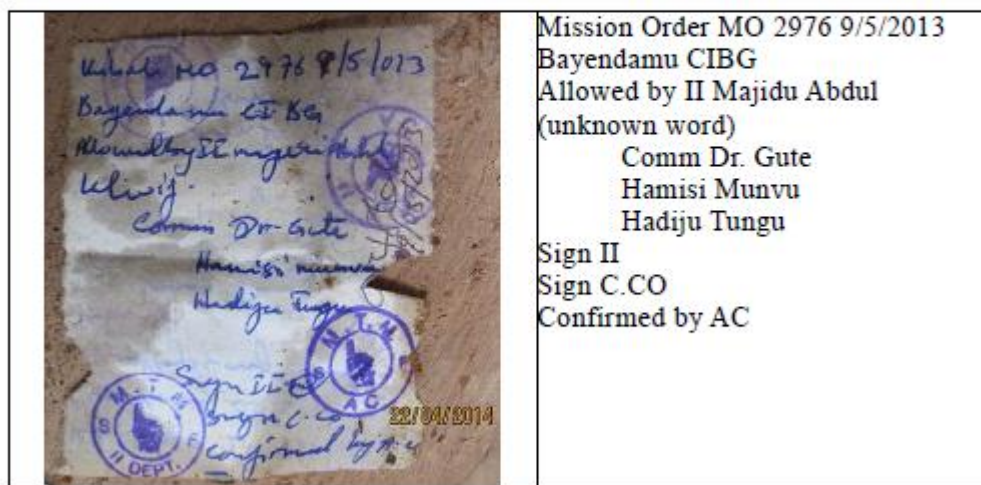 Kibali MO 2976 9/5/013
Bayendamu CI BG
Allowed by II
Comm Dr- Gute
Hamisi
Hadiju Tungu
M.T.M
S
AC
Sign II
Sign C.CO
Confirmed by A.C
22/04/2014
M.T.M
S F
II DEPT.
Mission Order MO 2976 9/5/2013
Bayendamu CIBG
Allowed by II Majidu Abdul
(unknown word)
Comm Dr. Gute
Hamisi Munvu
Hadiju Tungu
Sign II
Sign C.CO
Confirmed by AC